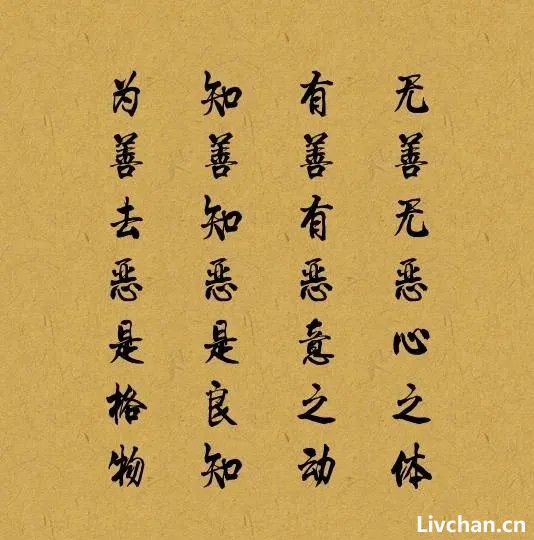 无善无恶心之体
有善有恶意之动
知善知恶是良知
为善去恶是格物
Livchan.cn